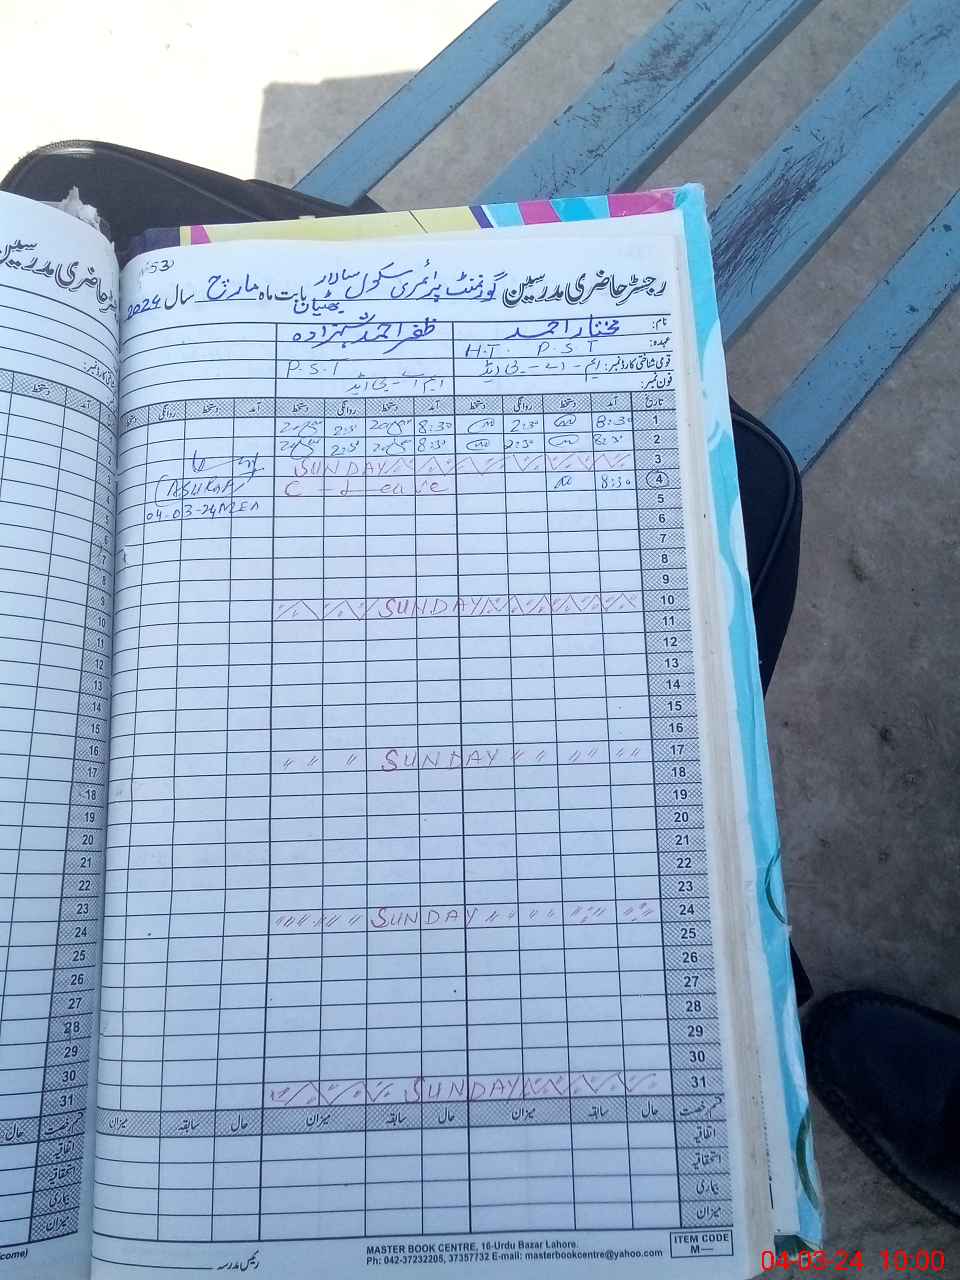 53
رجسٹر حاضری مدرسین گورنمنٹ پرائمری سکول سالار بھٹیاں بابت ماہ مارچ سال 2024
نام: مختار احمد ظفر احمد شہزادہ
عہدہ: H.T. P.S.T P.S.T
قومی شناختی کارڈ نمبر: ایم-اے-بی ایڈ ایم اے-بی ایڈ
فون نمبر:
تاریخ آمد دستخط روانگی دستخط آمد دستخط روانگی دستخط آمد دستخط روانگی
1 8:30 2:30 8:30 2:30
2 8:30 2:30 8:30 2:30
3 SUNDAY
4 8:30 C-Leave
5 04-03-24 MEA
6
7
8
9
10 SUNDAY
11
12
13
14
15
16
17 SUNDAY
18
19
20
21
22
23
24 SUNDAY
25
26
27
28
29
30
31 SUNDAY
قسم رخصت حال سابقہ میزان حال سابقہ میزان حال سابقہ میزان
اتفاقیہ
استحقاقیہ
بیماری
میزان
رئیس مدرسہ
MASTER BOOK CENTRE, 16-Urdu Bazar Lahore.
Ph: 042-37232205, 37357732 E-mail: masterbookcentre@yahoo.com
ITEM CODE
M—
04-03-24 10:00